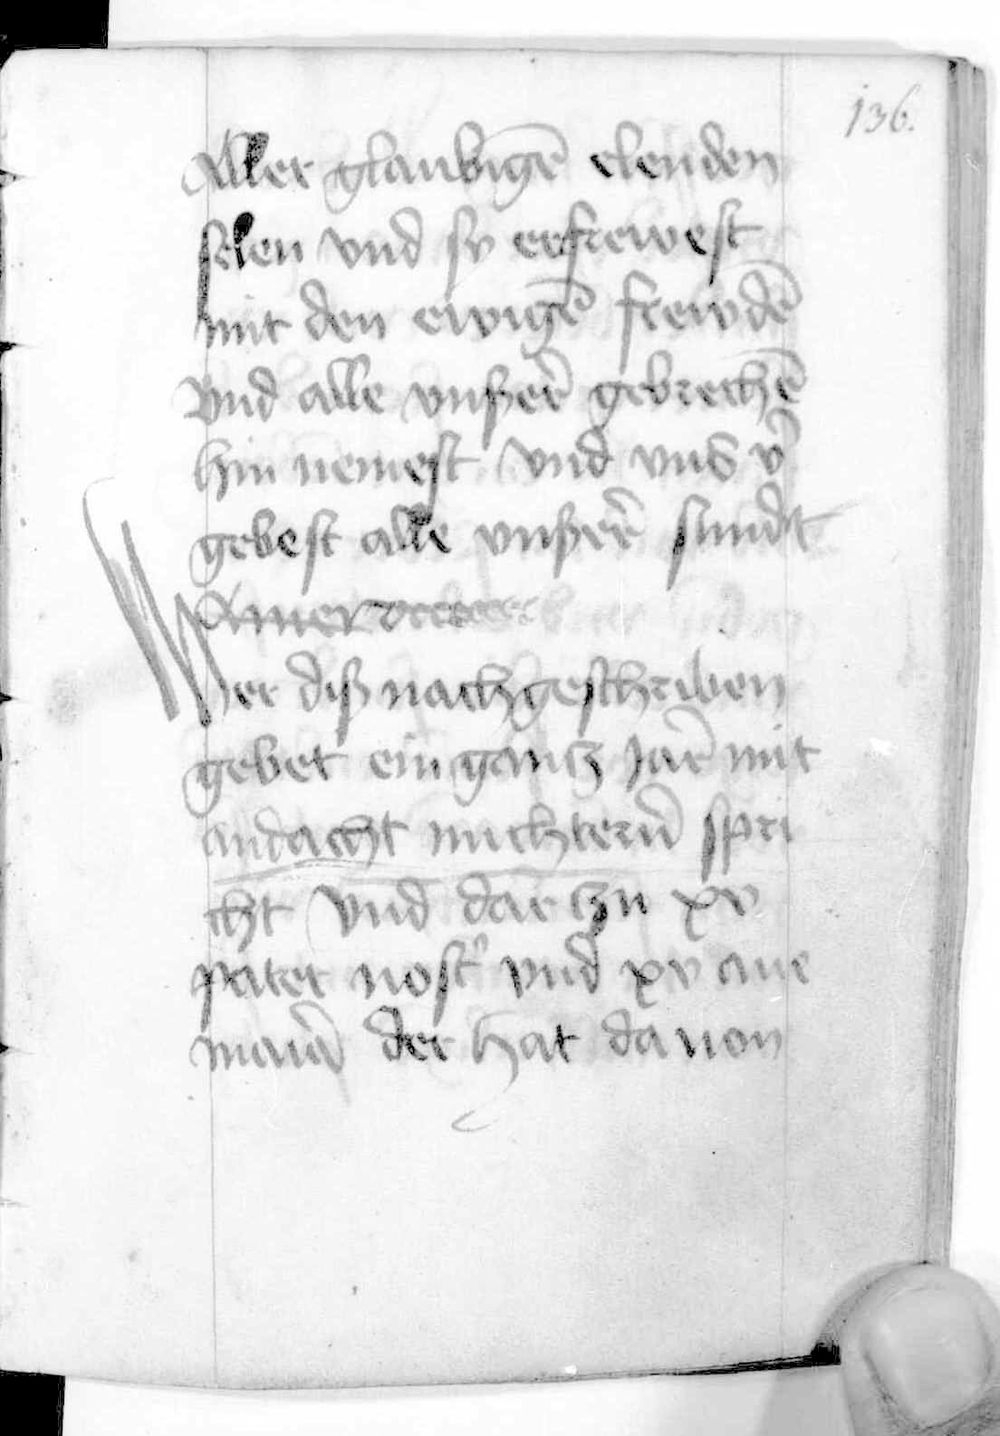 136.
Aller glaubigē elenden
selen vnd sy erfrewest
mit den ewigē frewdē
Vnd alle vnßer̄ gebrechē
hin nemest vnd vns v̄
gebest alle vnßer̄ sundt
Amen
Wer diß nachgeschriben
gebet ein gantz Jar̄ mit
andacht nuchtern̄ spri
cht Vnd dar zu xv
pater nost̄ vnd xv aue
maria der hat da uon